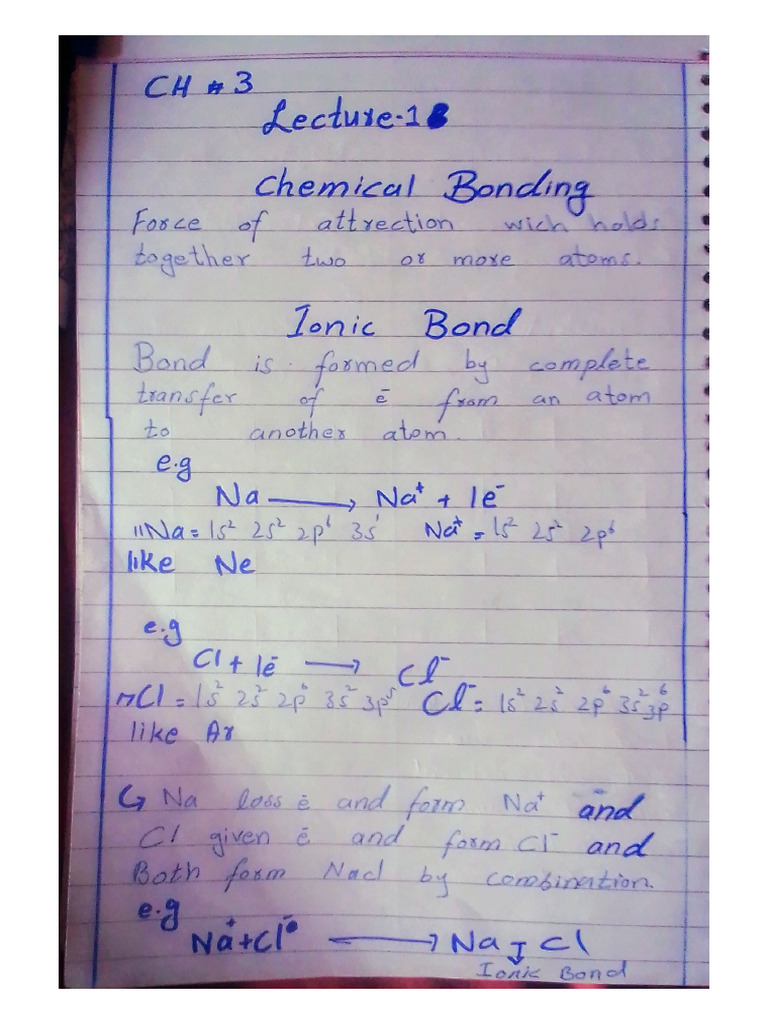 CH # 3
Lecture-1
Chemical Bonding
Force of attrection wich holds
together two or more atoms.
Ionic Bond
Bond is formed by complete
transfer of ē from an atom
to another atom.
e.g
Na → Na⁺ + 1e⁻
11Na = 1s² 2s² 2p⁶ 3s¹ Na⁺ = 1s² 2s² 2p⁶
like Ne
e.g
Cl + 1ē → Cl⁻
17Cl = 1s² 2s² 2p⁶ 3s² 3p⁵ Cl⁻ = 1s² 2s² 2p⁶ 3s² 3p⁶
like Ar
↪ Na loss ē and form Na⁺ and
Cl given ē and form Cl⁻ and
Both form Nacl by combination.
e.g
Na⁺ + Cl⁻ → Na Cl
Ionic Bond